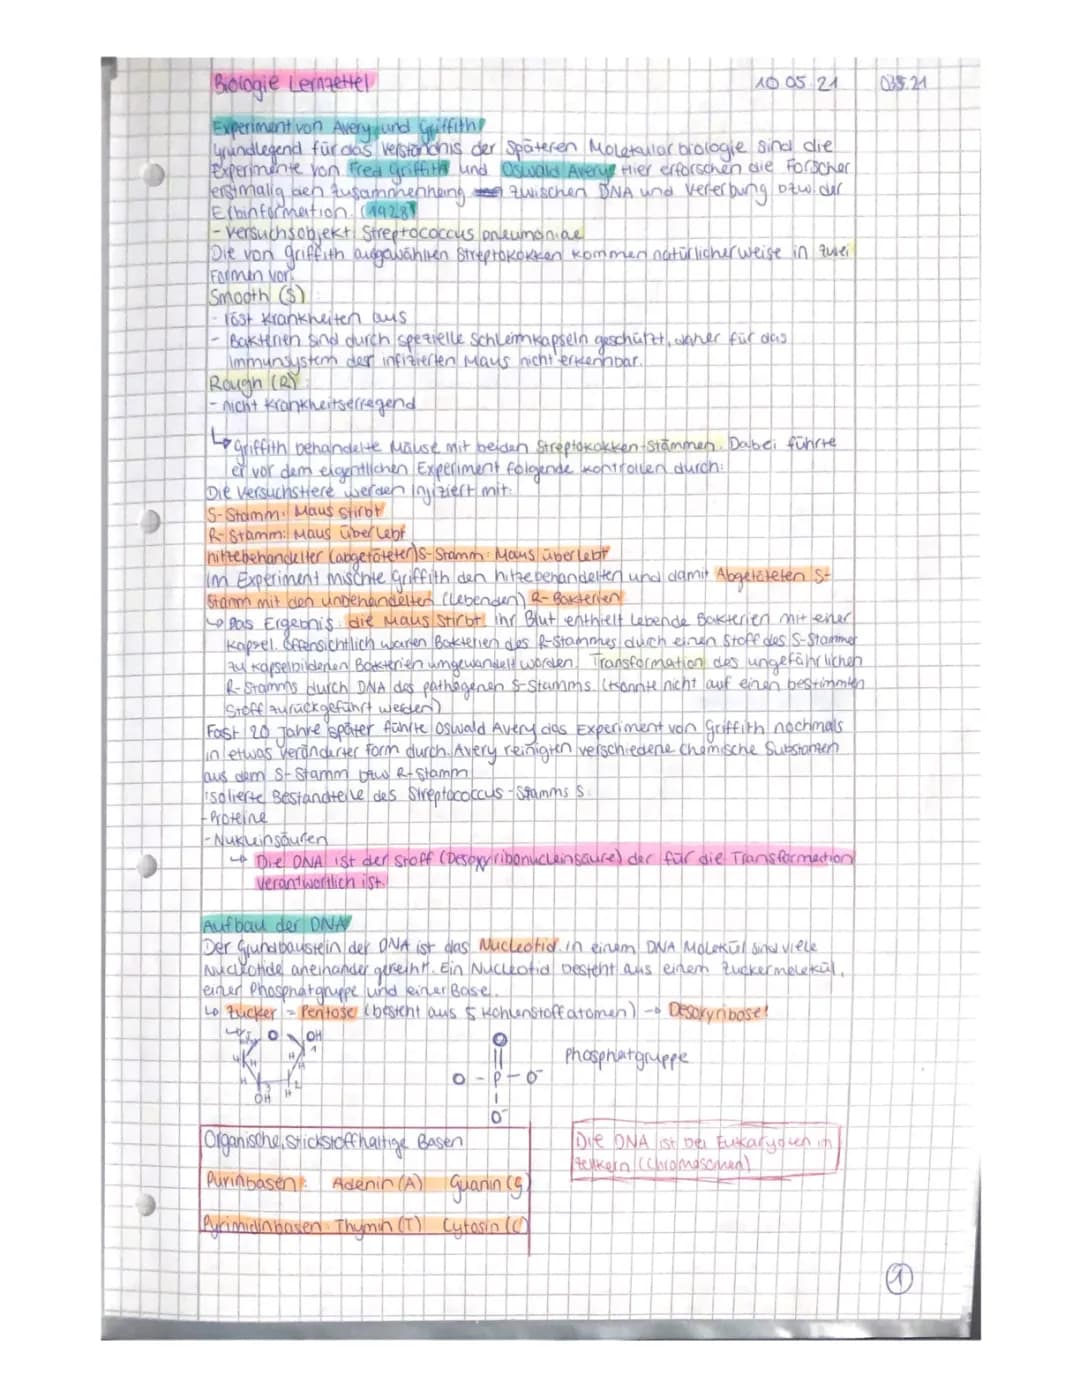 Biologie Lernzettel 10.05.21
Experiment von Avery und Griffith
Grundlegend für das Verständnis der späteren Molekularbiologie sind die
Experimente von Fred Griffith und Oswald Avery. Hier erforschen die Forscher
erstmalig den Zusammenhang zwischen DNA und Vererbung bzw. der
Erbinformation. (1928)
- Versuchsobjekt Streptococcus pneumoniae
Die von Griffith ausgewählten Streptokokken kommen natürlicherweise in zwei
Formen vor.
Smooth (S):
- löst Krankheiten aus
- Bakterien sind durch spezielle Schleimkapseln geschützt, daher für das
Immunsystem der infizierten Maus nicht erkennbar.
Rough (R):
- nicht krankheitserregend
↳ Griffith behandelte Mäuse mit beiden Streptokokken-Stämmen. Dabei führte
er vor dem eigentlichen Experiment folgende Kontrollen durch:
Die Versuchstiere werden injiziert mit:
S-Stamm: Maus stirbt
R-Stamm: Maus überlebt
hitzebehandelter (abgetöteter) S-Stamm: Maus überlebt
Im Experiment mischte Griffith den hitzebehandelten und damit Abgetöteten S-
Stamm mit den unbehandelten (Lebenden) R-Bakterien
↳ Das Ergebnis: die Maus stirbt. Ihr Blut enthielt Lebende Bakterien mit einer
Kapsel. Offensichtlich waren Bakterien des R-Stammes durch einen Stoff des S-Stammes
zu kapselbildenen Bakterien umgewandelt worden. Transformation des ungefährlichen
R-Stamms durch DNA des pathogenen S-Stamms. (konnte nicht auf einen bestimmten
Stoff zurückgeführt werden)
Fast 20 Jahre später führte Oswald Avery das Experiment von Griffith nochmals
in etwas veränderter Form durch. Avery reinigten verschiedene chemische Substanzen
aus dem S-Stamm bzw R-Stamm
Isolierte Bestandteile des Streptococcus-Stamms S:
- Proteine
- Nukleinsäuren
↳ Die DNA ist der Stoff (Desoxyribonucleinsäure) der für die Transformation
verantwortlich ist.
Aufbau der DNA
Der Grundbaustein der DNA ist das Nucleotid. in einem DNA Molekül sind viele
Nucleotide aneinander gereiht. Ein Nucleotid besteht aus einem Zuckermolekül,
einer Phosphatgruppe und einer Base.
↳ Zucker = Pentose (besteht aus 5 Kohlenstoffatomen) → Desoxyribose!
O OH
H H 1
4 H
H 2
OH H
O
O - P - O⁻
O⁻
Phosphatgruppe
Organische, stickstoffhaltige Basen
Purinbasen: Adenin (A) Guanin (G)
Pyrimidinbasen: Thymin (T) Cytosin (C)
Die DNA ist bei Eukaryoten in
Zellkern (Chromosomen)
1